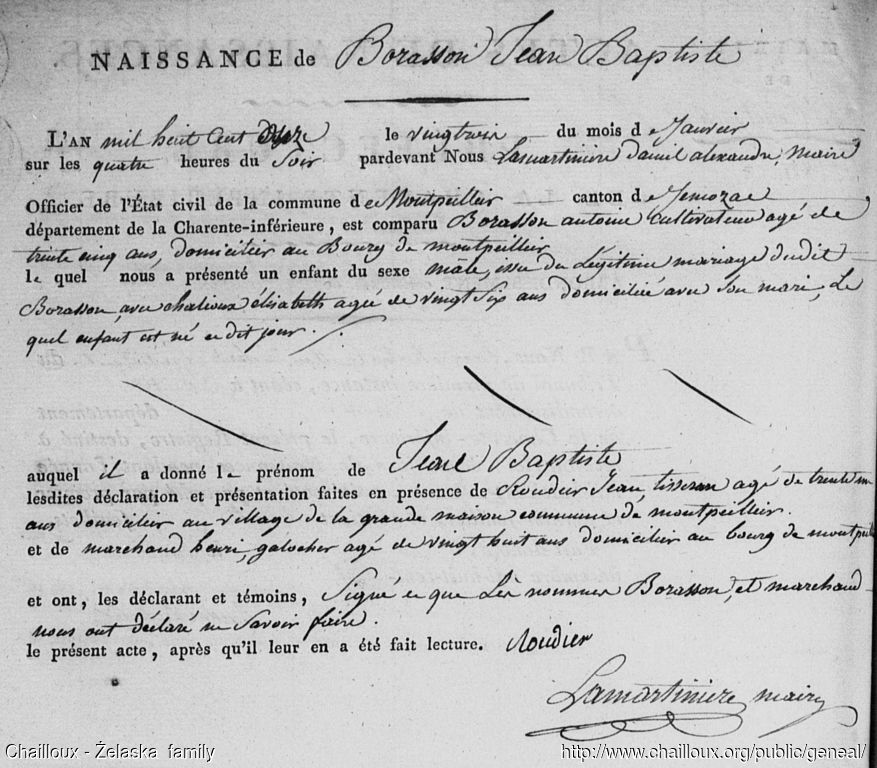 NAISSANCE de Borasson Jean Baptiste
L'AN mil huit Cent Onze le vingtrois du mois de Janvier
sur les quatre heures du Soir pardevant Nous Lamartiniere daniel alexandre, Maire
Officier de l'État civil de la commune de Montpellier canton de Jemozac
département de la Charente-inférieure, est comparu Borasson antoine Cultivateur agé de
trente cinq ans, domicilier au Bourg de montpeillier
le quel nous a présenté un enfant du sexe mâle, issu du Légitime mariage dudit
Borasson, avec chalioux élisabeth agée de vingt Six ans domiciliée avec Son mari, Le
quel enfant est né ce dit jour.
auquel il a donné le prénom de Jean Baptiste
lesdites déclaration et présentation faites en présence de Roudier Jean, tisseran agé de trente
ans domicilier au village de la grande maison commune de montpeillier.
et de marchand henri, galocher agé de vingt huit ans domicilier au bourg de montpeillier
et ont, les déclarant et témoins, Signé ce que Les nommés Borasson, et marchand
nous ont déclaré ne Savoir faire.
le présent acte, après qu'il leur en a été fait lecture. Roudier
Lamartiniere maire
Chailloux - Żelaska family http://www.chailloux.org/public/geneal/